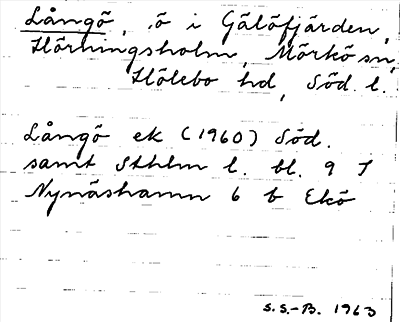 Långö, ö i Gälöfjärden,
Hörningsholm, Mörkö sn,
Hölebo hd, Söd. l.
Långö ek (1960) Söd.
samt Sthlm l. bl. 9 I
Nynäshamn 6 b Ekö
S.S.-B. 1963